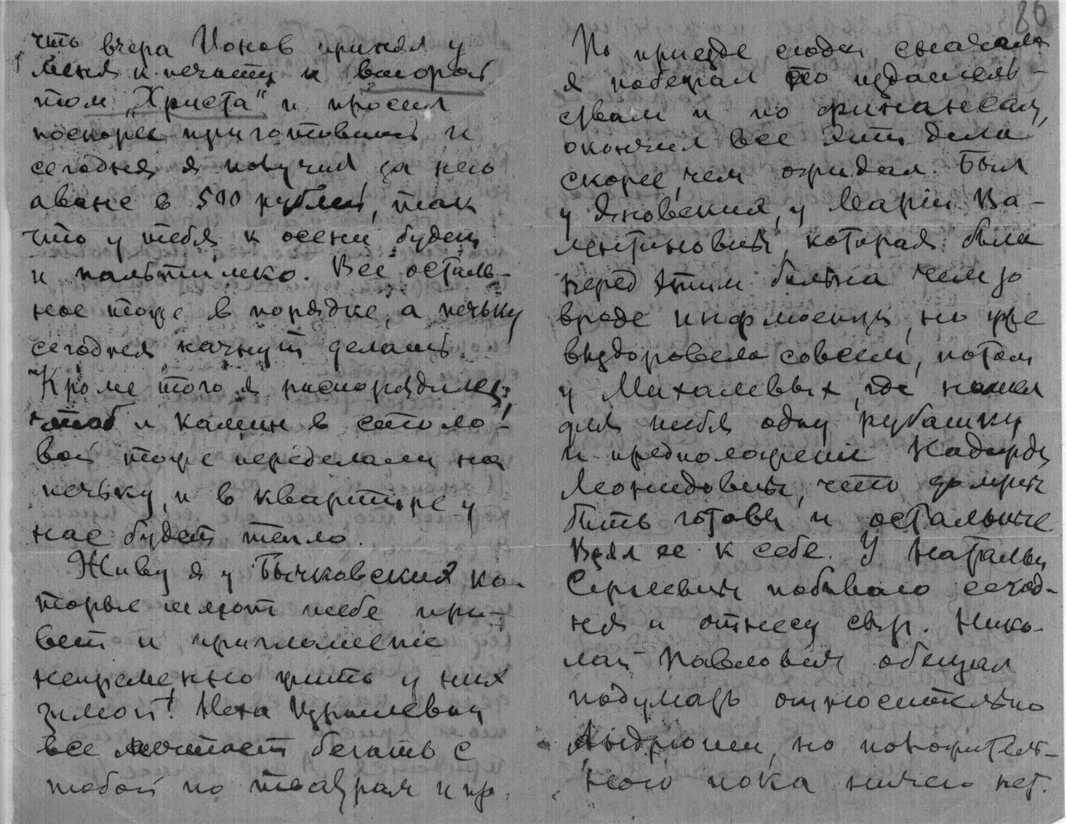 что вчера Ионов принял у
меня к печати и второй
том „Христа“ и просил
поскорее приготовить и
сегодня я получил за него
аванс в 500 рублей, так
что у тебя к осени будет
и пальтишко. Все осталь-
ное тоже в порядке, а печку
сегодня начнут делать.
Кроме того я распорядился,
чтоб и камин в столо-
вой тоже переделали на
печку, и в квартире у
нас будет тепло.
Живу я у Бычковских ко-
торые шлют тебе при-
вет и приглашение
непременно жить у них
зимой!
все мечтает бегать с
тобой по театрам и пр.
86
По приезде сюда сначала
я побегал по издатель-
ствам и по финансам,
окончил все эти дела
скорее, чем ожидал. Был
у Яновских, у Марии Ва-
лентиновны, которая была
перед этим больна чем то
вроде инфлюенцы, но уже
выздоровела совсем, потом
у Михалевых, где нашел
для тебя одну рубашку
и предположение Надежды
Леонидовны, что должны
быть готовы и остальные
Взял ее к себе. У Натальи
Сергеевны побываю сегод-
ня и отнесу сыр. Нико-
лай Павлович обещал
подумать относительно
Андрюши, но положитель-
ного пока ничего нет.